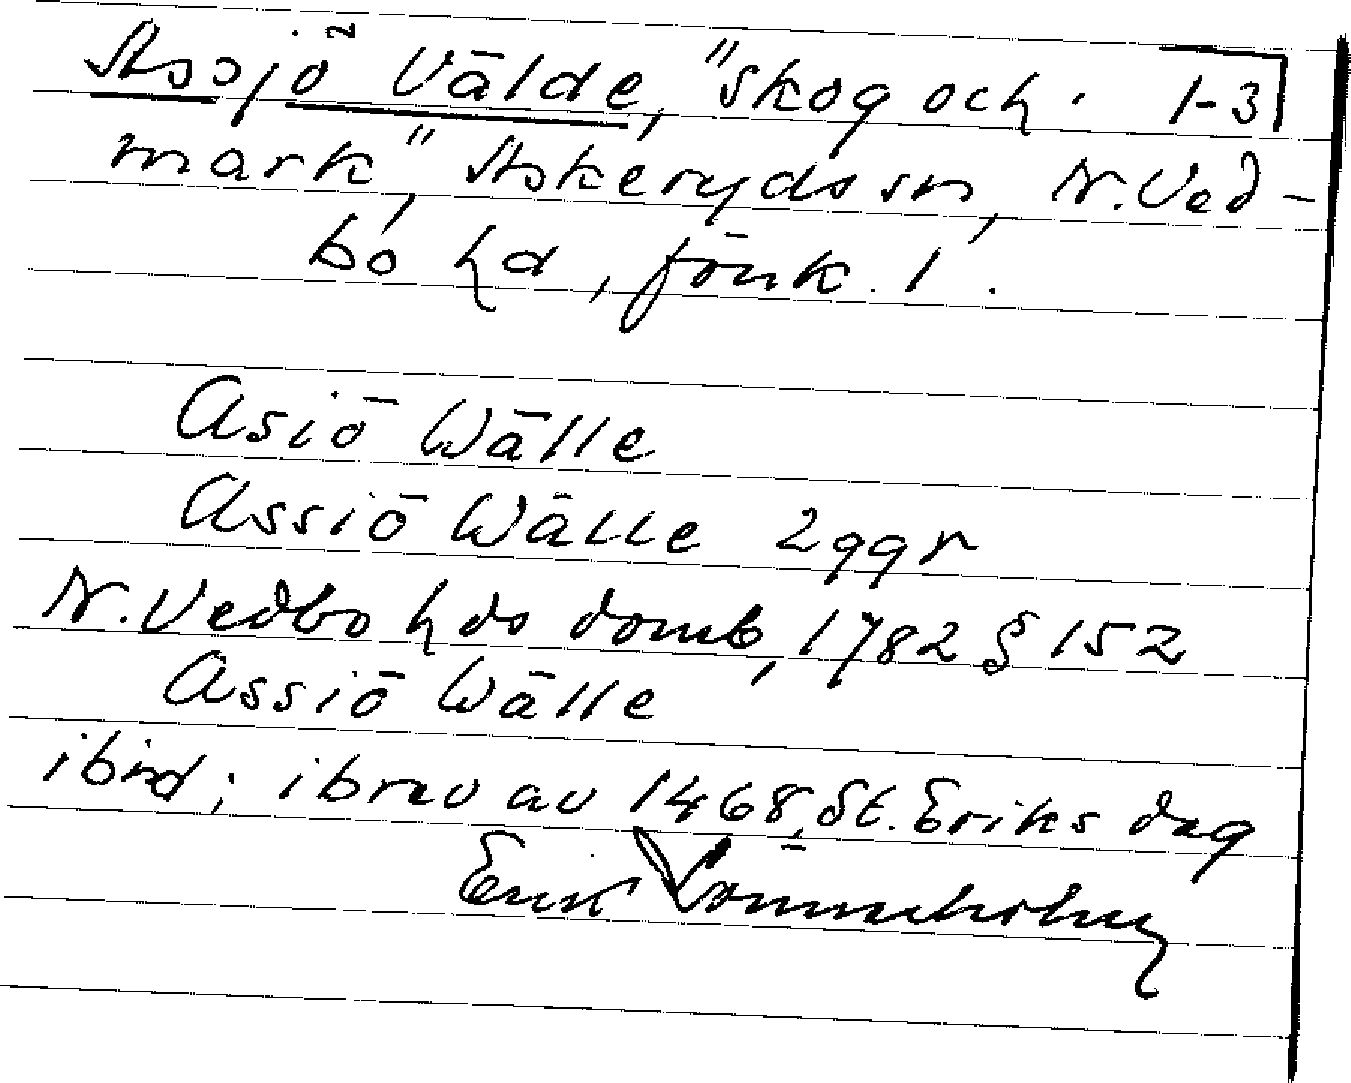 Assjö Välde, "skog och. 1-3
mark", Askeryds sn, N. Ved-
bo hd, Jönk. l.
Asiö Wälle
Assiö Wälle 2 ggr
N. Vedbo hds domb, 1782 § 152
Assiö Wälle
ibid; i brev av 1468, St. Eriks dag
Erik Lönnerholm